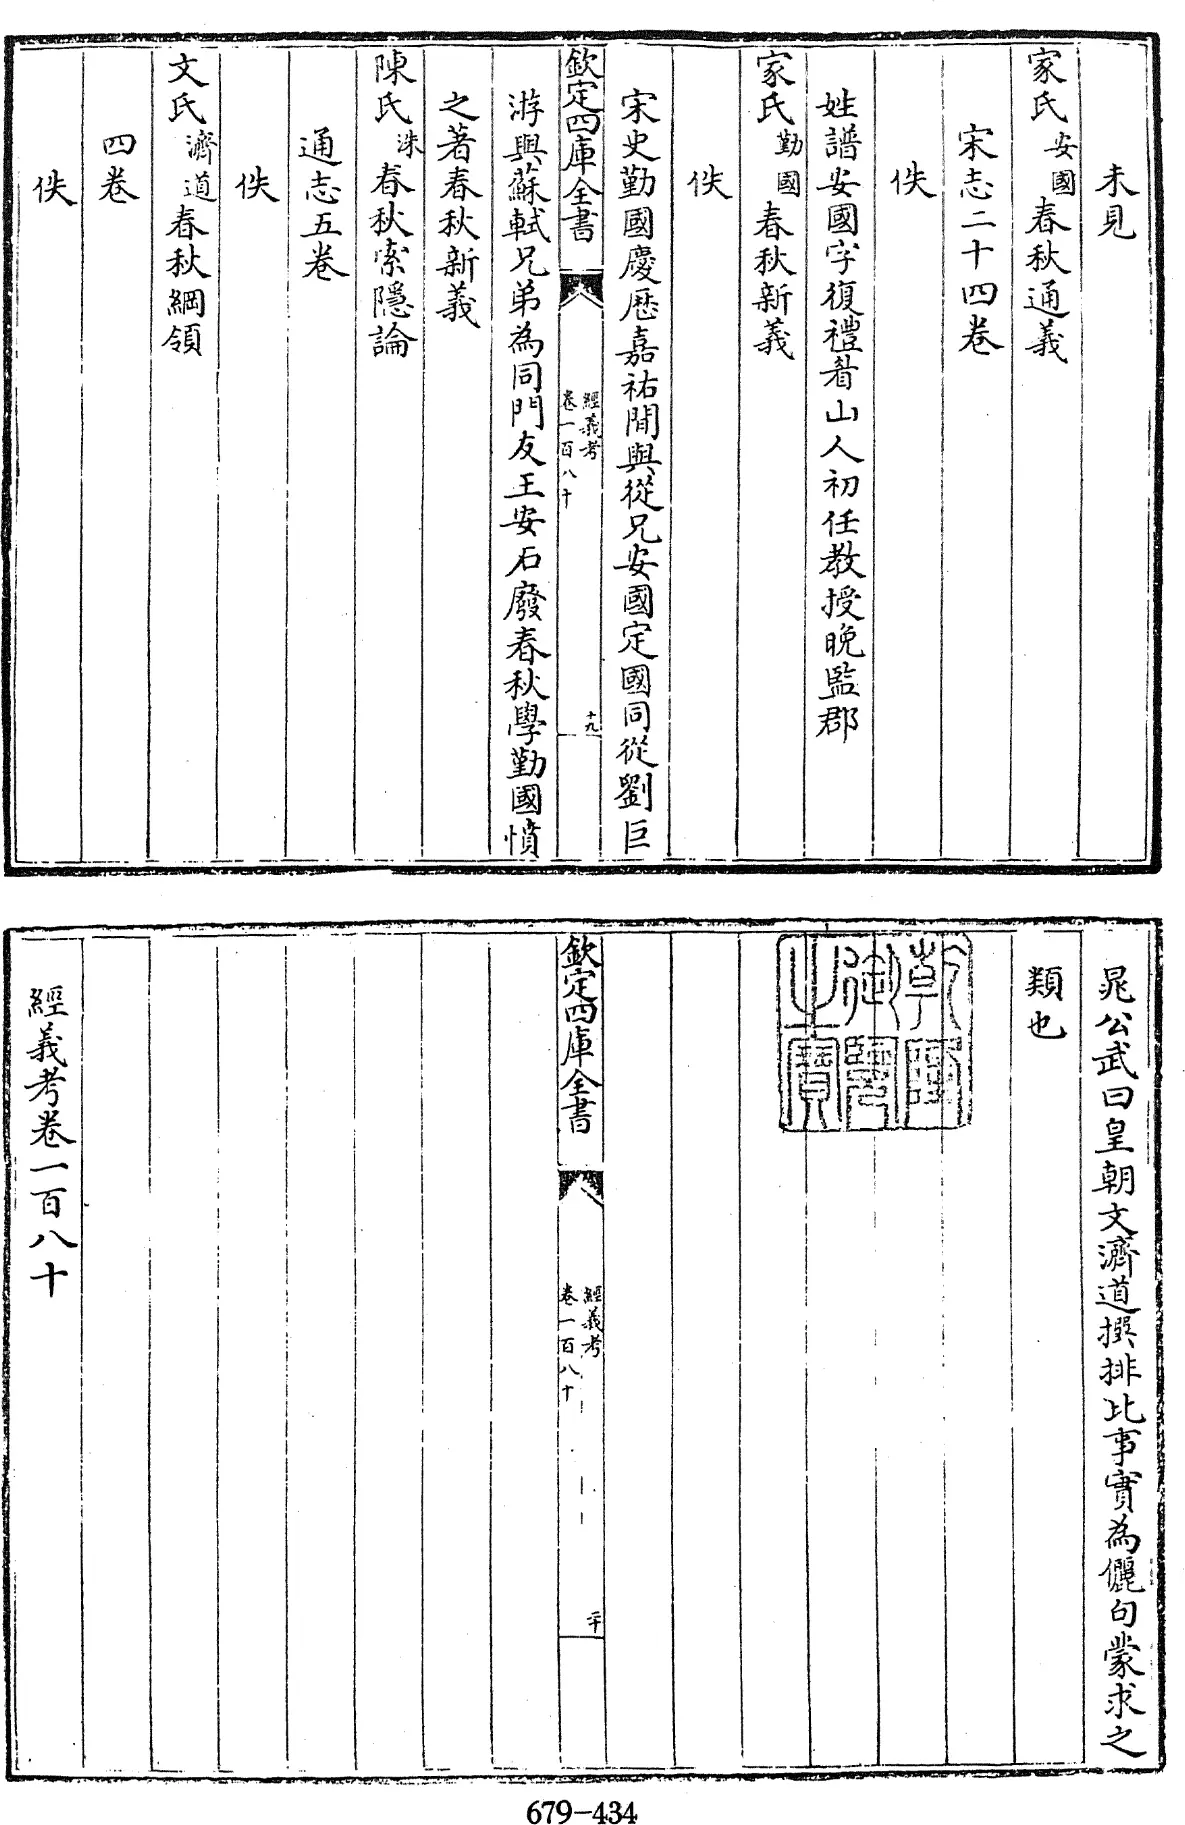 未見
家氏安國春秋通義
宋志二十四卷
佚
姓譜安國字復禮眉山人初任教授晚監郡
家氏勤國春秋新義
佚
宋史勤國慶歷嘉祐間與從兄安國定國同從劉巨
欽定四庫全書
經義考
卷一百八十
十九
游與蘇軾兄弟為同門友王安石廢春秋學勤國憤
之著春秋新義
陳氏洙春秋索隱論
通志五卷
佚
文氏濟道春秋綱領
四卷
佚
晁公武曰皇朝文濟道撰排比事實為儷句蒙求之
類也
乾隆
御覽
之寶
欽定四庫全書
經義考
卷一百八十
二十
經義考卷一百八十
679-434